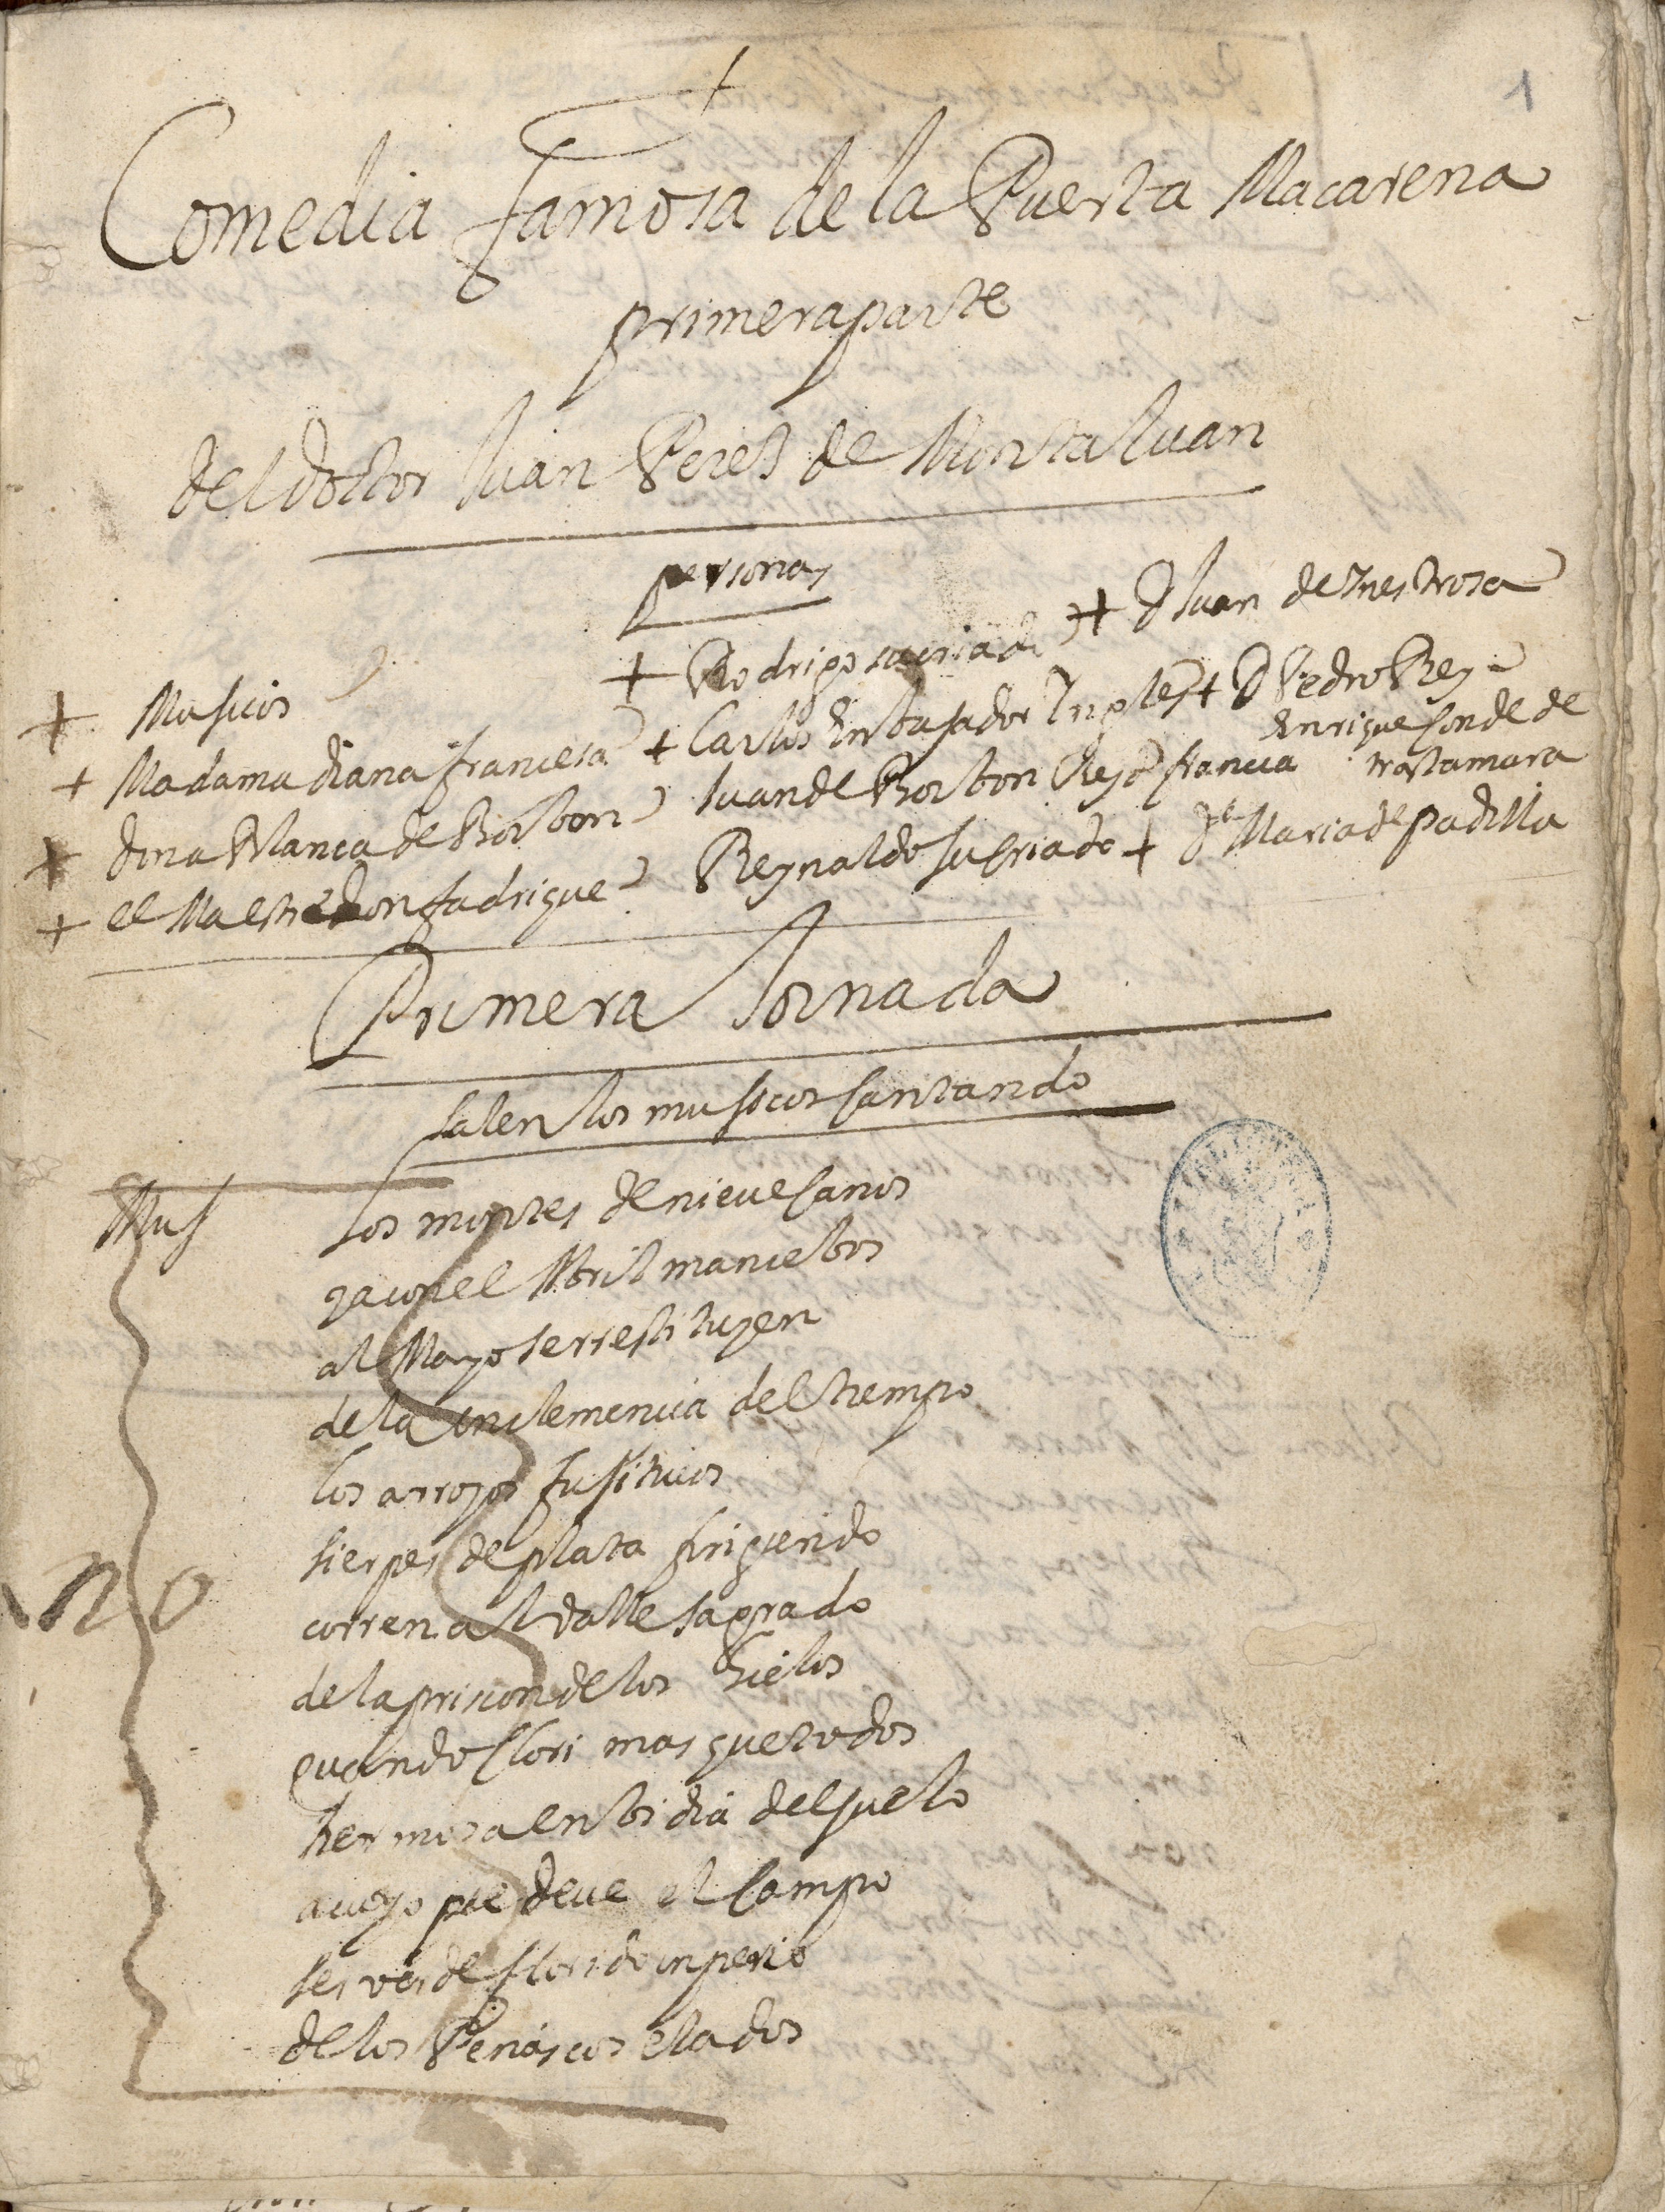 1
Comedia famosa de la Puerta Macarena
primera parte
del doctor Juan Peres de Montaluan
personas
+ Musicos
+ Rodrigo su criado
+ D Juan de Inestrosa
+ Madama diana francesa
+ Carlos Enbajador Ingles
+ D Pedro Rey
+ dona Blanca de Borbon
Juan de Borbon Rey de francia
Enrique Conde de
trastamara
+ el Maestre don fadrique
Reynaldo su criado
+ Da Maria de padilla
Primera Jornada
salen los musicos cantando
Mus
los montes de nieue canos
ya con el Abril mancebos
al Mayo se rrestituyen
de la inclemencia del tiempo
los arroyos fujitiuos
sierpes de plata fingiendo
corren al valle sagrado
no
de la prision de los hielos
quando Clori mas que todos
hermosa enbidia del suelo
a cuyo pie deue el campo
ser verde florido inperio
de los Penascos elados